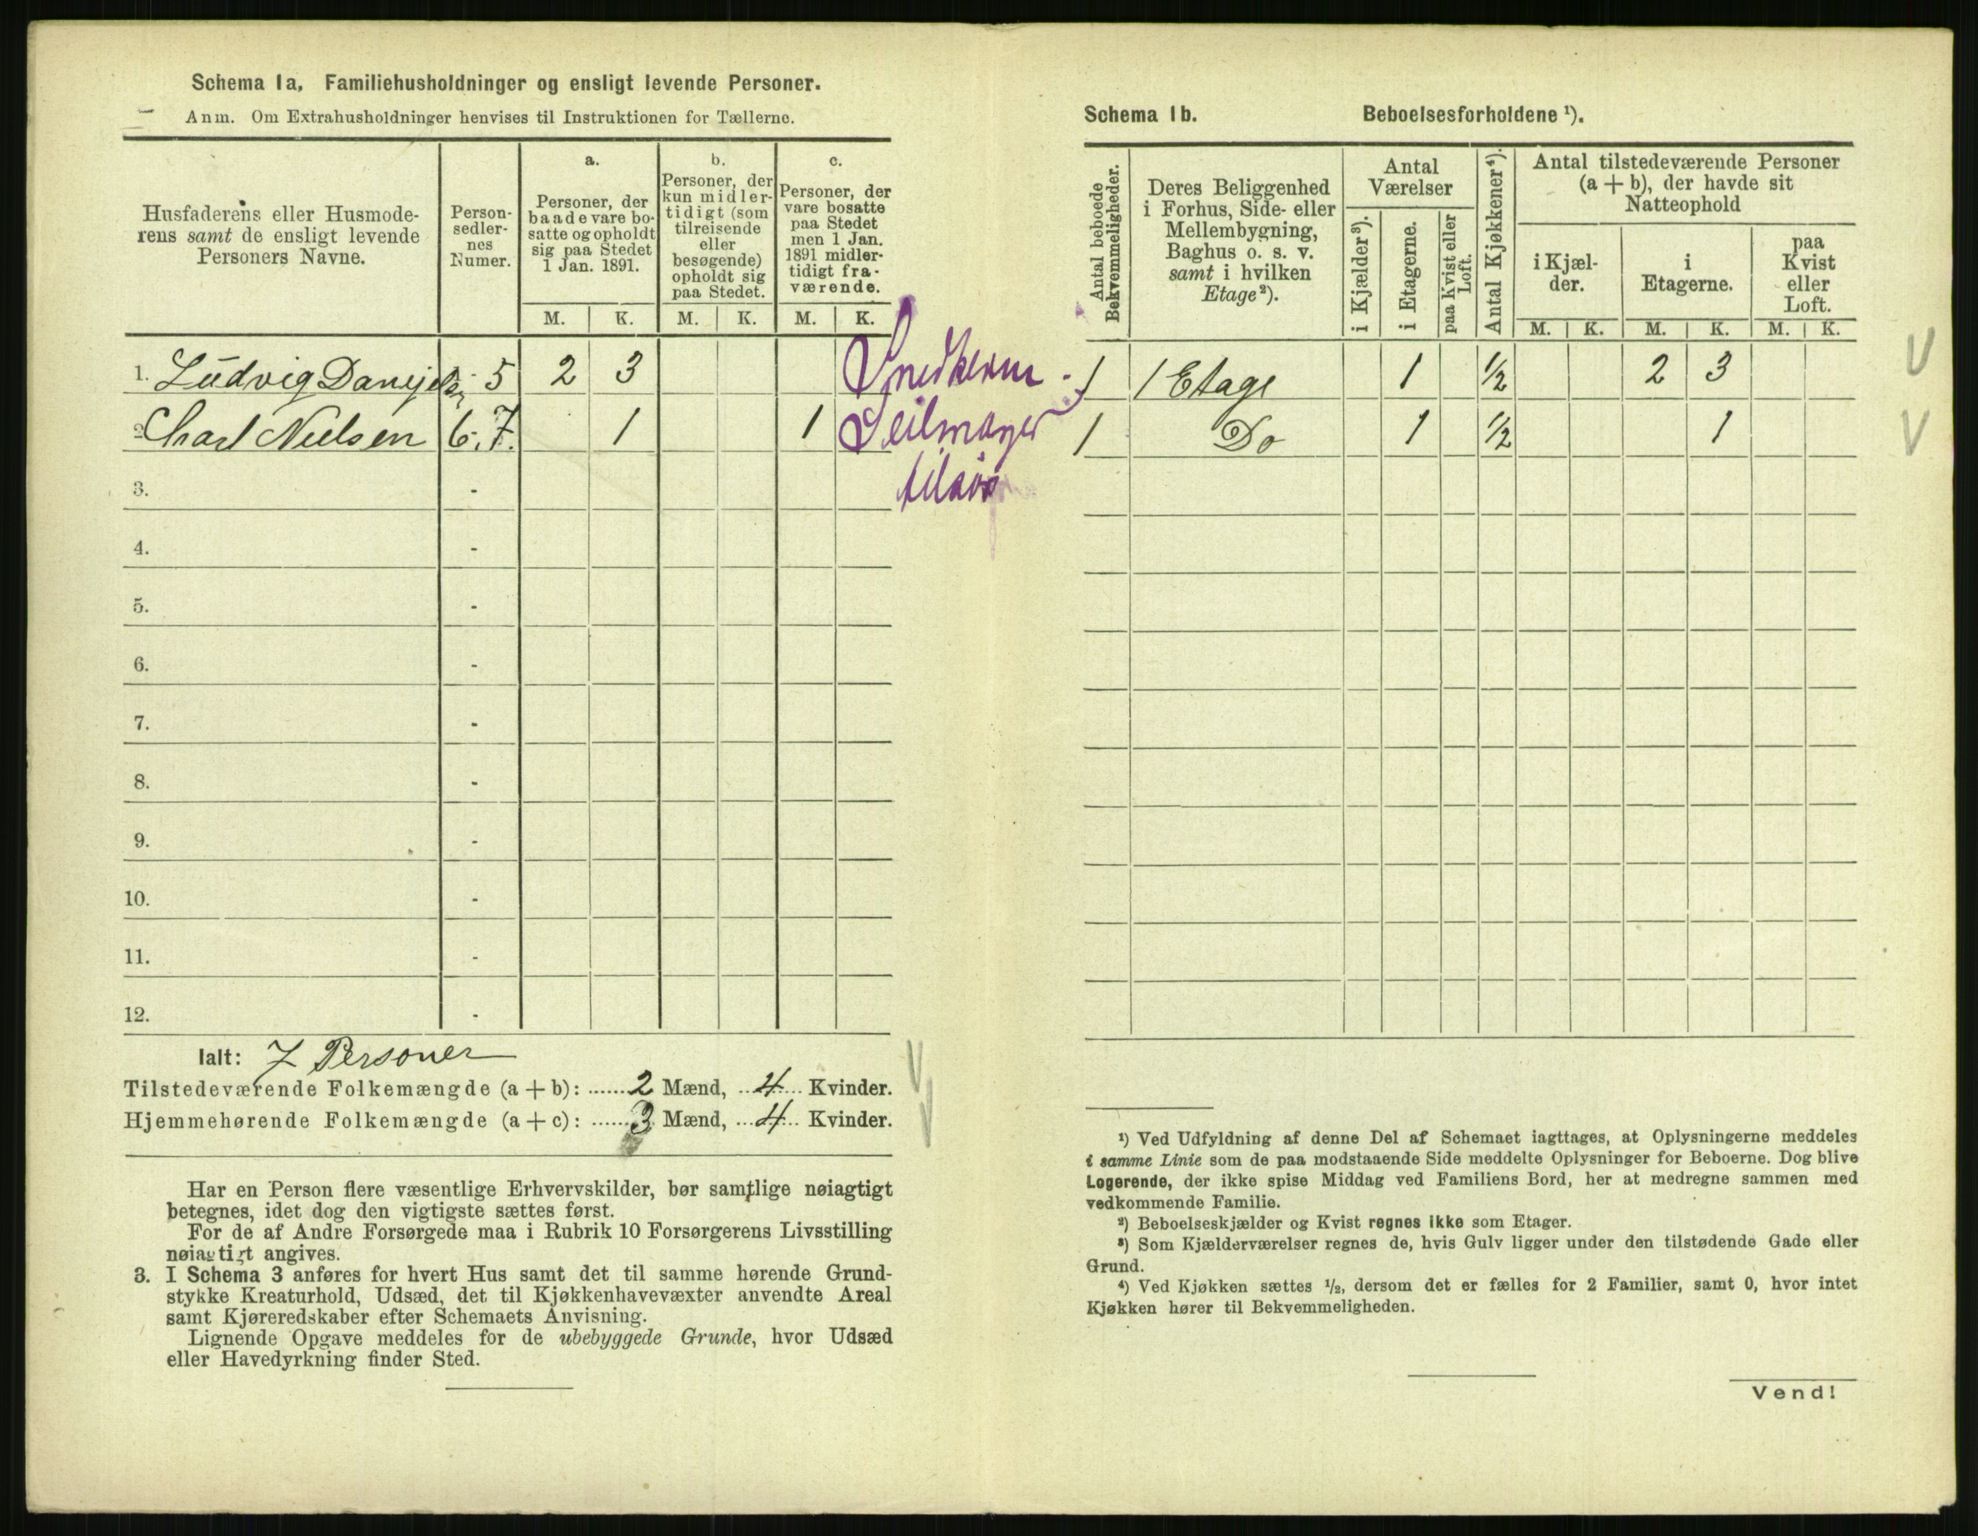 Schema 1a. Familiehusholdninger og ensligt levende Personer.
Anm. Om Extrahusholdninger henvises til Instruktionen for Tællerne.
Husfaderens eller Husmode-
rens samt de ensligt levende
Personers Navne.
Person-
sedler-
nes
Numer.
a.
Personer, der
baade vare bo-
satte og opholdt
sig paa Stedet
1 Jan. 1891.
b.
Personer, der
kun midler-
tidigt (som
tilreisende
eller
besøgende)
opholdt sig
paa Stedet.
c.
Personer, der
vare bosatte
paa Stedet
men 1 Jan.
1891 midler-
tidigt fra-
værende.
M. K. M. K. M. K.
1. Ludvig - 5 2 3
2. Charl Nielsen 6.7. 1 1
3. -
4. -
5. -
6. -
7. -
8. -
9. -
10. -
11. -
12. -
Ialt: 7 Personer
Tilstedeværende Folkemængde (a + b): 2 Mænd, 4 Kvinder.
Hjemmehørende Folkemængde (a + c): 3 Mænd, 4 Kvinder.
Har en Person flere væsentlige Erhvervskilder, bør samtlige nøiagtigt
betegnes, idet dog den vigtigste sættes først.
For de af Andre Forsørgede maa i Rubrik 10 Forsørgerens Livsstilling
nøiagtigt angives.
3. I Schema 3 anføres for hvert Hus samt det til samme hørende Grund-
stykke Kreaturhold, Udsæd, det til Kjøkkenhavevæxter anvendte Areal
samt Kjøreredskaber efter Schemaets Anvisning.
Lignende Opgave meddeles for de ubebyggede Grunde, hvor Udsæd
eller Havedyrkning finder Sted.
Schema 1b. Beboelsesforholdene ¹).
Antal beboede
Bekvemmeligheder.
Deres Beliggenhed
i Forhus, Side- eller
Mellembygning,
Baghus o. s. v.
samt i hvilken
Etage²).
Antal
Værelser
i Kjælder³).
i Etagerne.
paa Kvist eller
Loft.
Antal Kjøkkener⁴).
Antal tilstedeværende Personer
(a + b), der havde sit
Natteophold
i Kjæl-
der.
i
Etagerne.
paa
Kvist
eller
Loft.
M. K. M. K. M. K.
1 1 Etage 1 ½ 2 3
1 Do 1 ½ 1
¹) Ved Udfyldning af denne Del af Schemaet iagttages, at Oplysningerne meddeles
i samme Linie som de paa modstaaende Side meddelte Oplysninger for Beboerne. Dog blive
Logerende, der ikke spise Middag ved Familiens Bord, her at medregne sammen med
vedkommende Familie.
²) Beboelseskjælder og Kvist regnes ikke som Etager.
³) Som Kjælderværelser regnes de, hvis Gulv ligger under den tilstødende Gade eller
Grund.
⁴) Ved Kjøkken sættes ½, dersom det er fælles for 2 Familier, samt 0, hvor intet
Kjøkken hører til Bekvemmeligheden.
Vend!